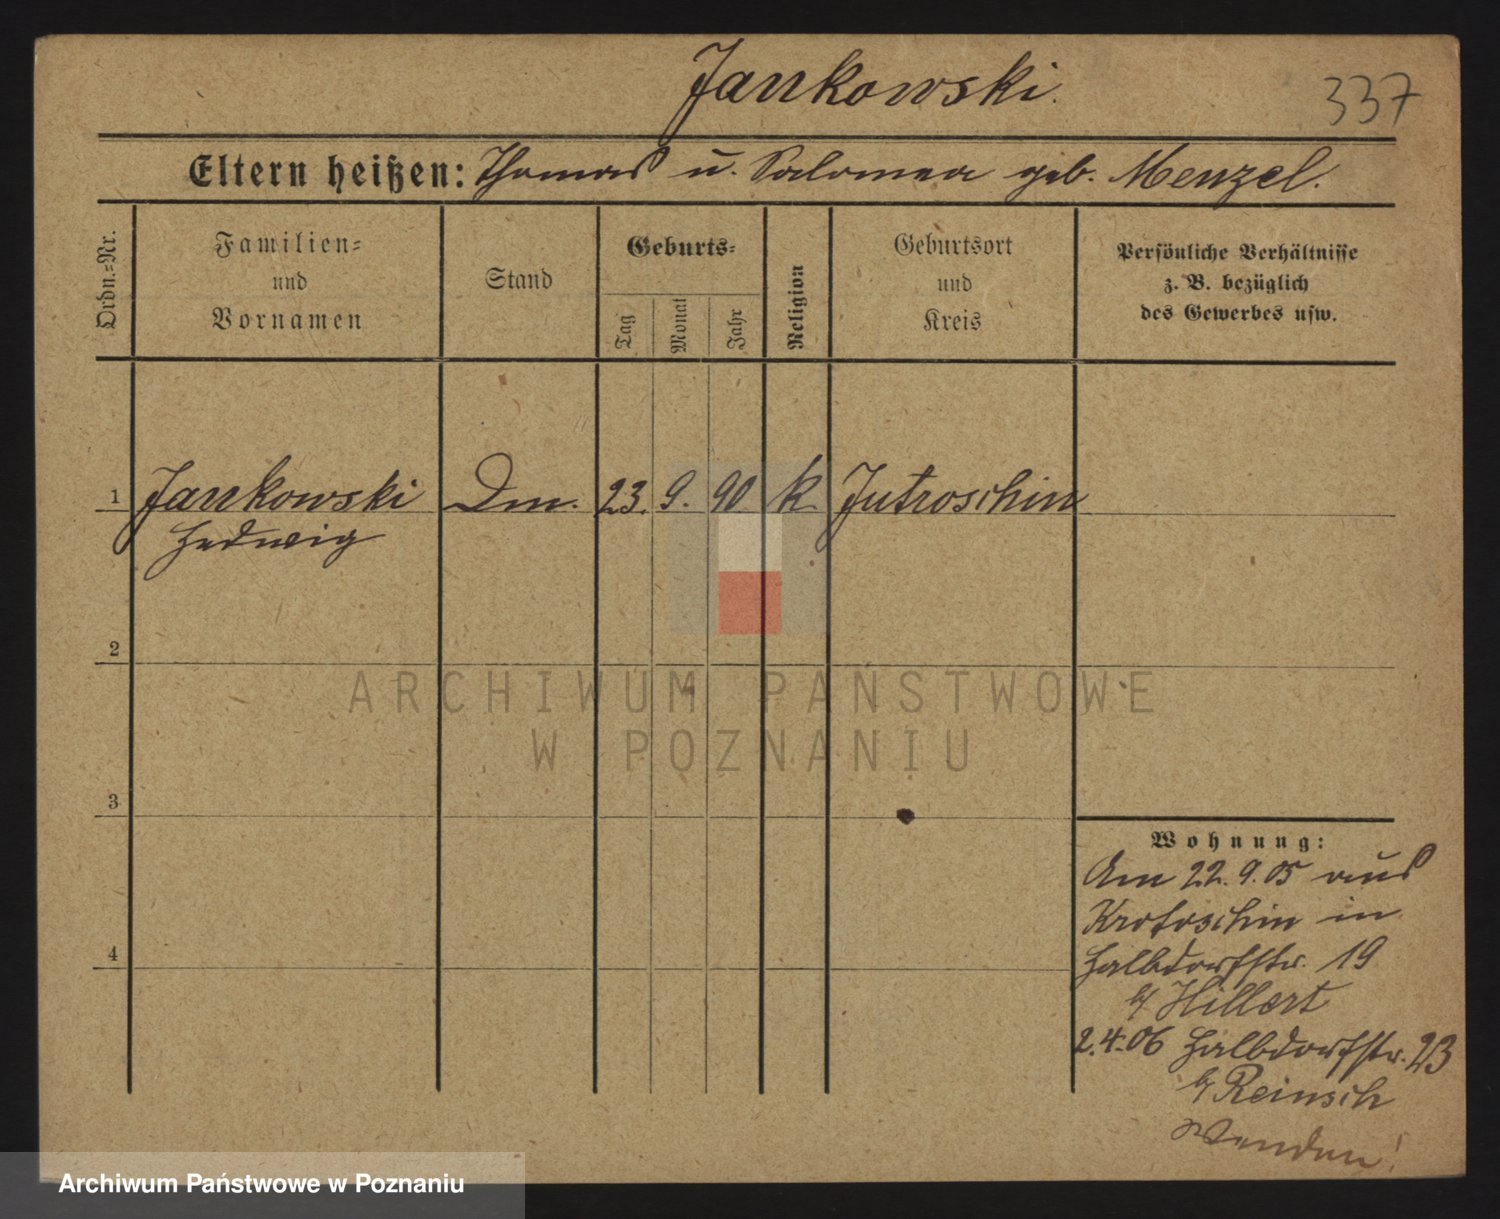 Jankowski.
337
Eltern heißen: Thomas u. Salomea geb. Menzel.
Ordn.-Nr.
Familien-
und
Vornamen
Stand
Geburts-
Tag
Monat
Jahr
Religion
Geburtsort
und
Kreis
Persönliche Verhältnisse
z. B. bezüglich
des Gewerbes usw.
1 Jankowski Dm. 23. 9. 90 k. Jutroschin
Hedwig
2
ARCHIWUM PAŃSTWOWE
W POZNANIU
3
Wohnung:
Am 22.9.05 aus
Krotoschin in
Halbdorfstr. 19
b/ Hillert
4
2.4.06 Halbdorfstr. 23
b/ Reinsch
Wenden!
Archiwum Państwowe w Poznaniu